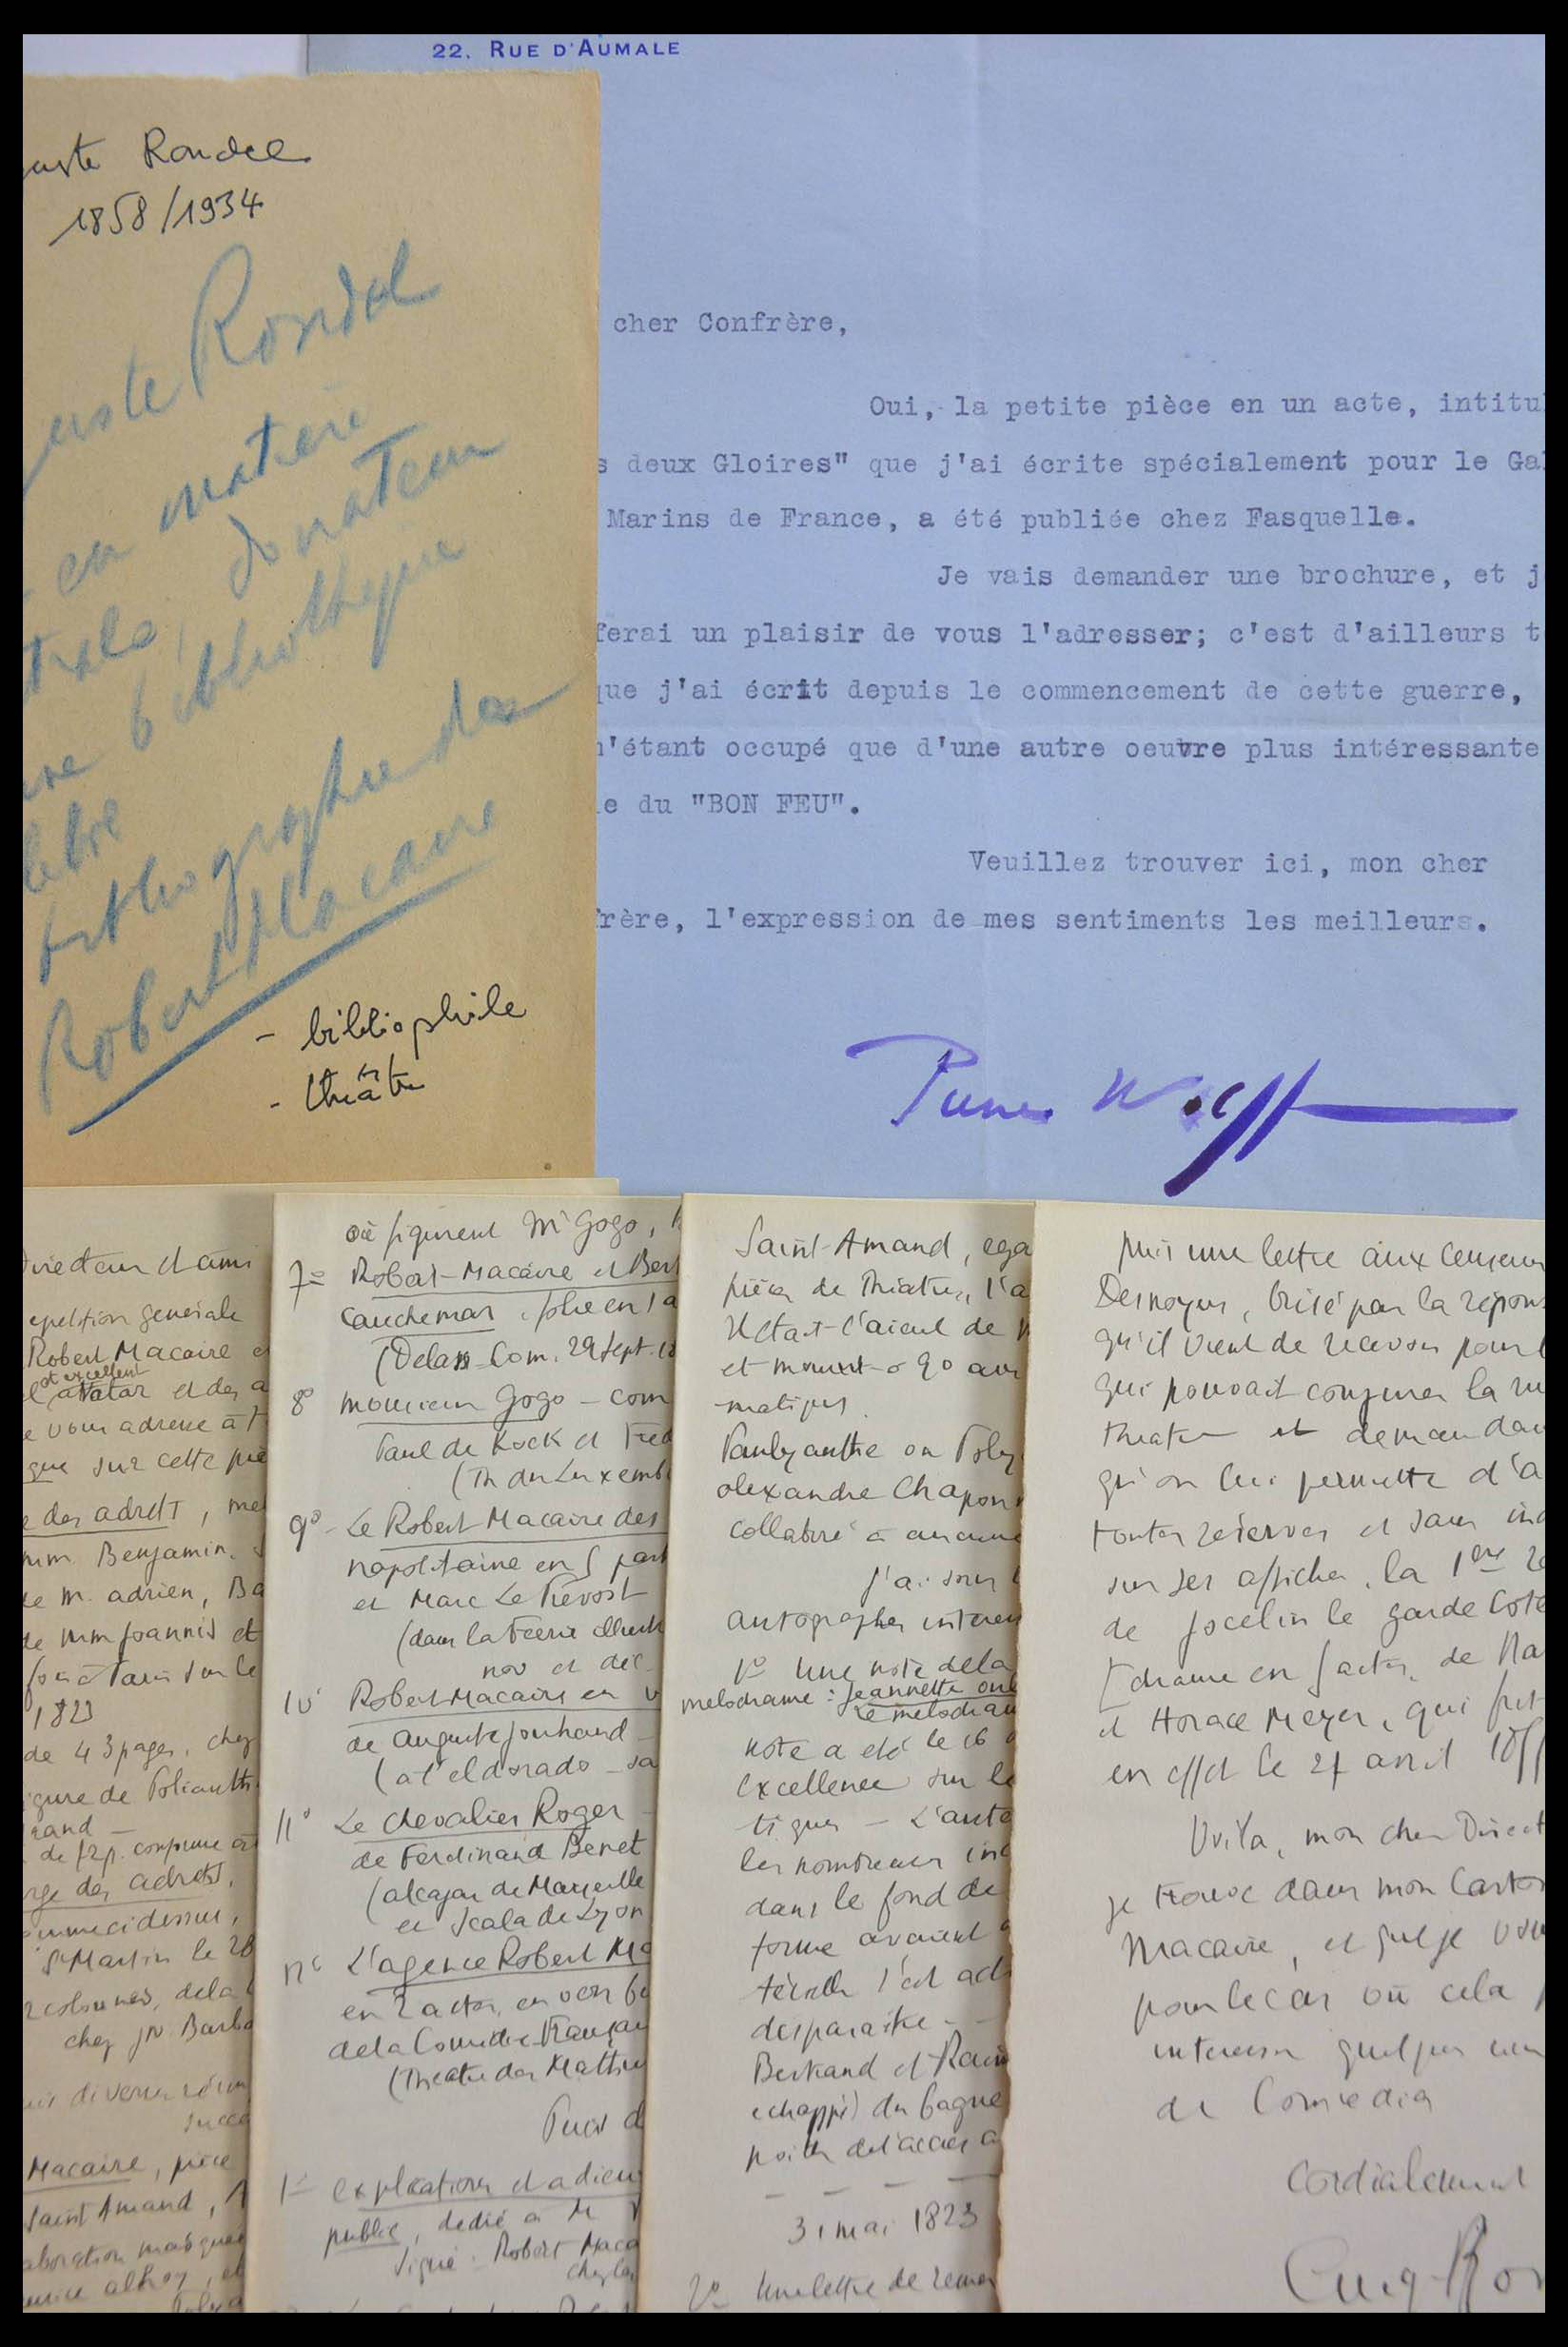 22. RUE D'AUMALE
uste Rondel
1858/1934
uste Rondel
en matière
donateur
bibliothèque
orthographie des
Robert Macaire
- bibliophile
- théâtre
cher Confrère,
Oui, la petite pièce en un acte, intitul
s deux Gloires" que j'ai écrite spécialement pour le Gal
Marins de France, a été publiée chez Fasquelle.
Je vais demander une brochure, et j
ferai un plaisir de vous l'adresser; c'est d'ailleurs t
que j'ai écrit depuis le commencement de cette guerre,
n'étant occupé que d'une autre oeuvre plus intéressante
le du "BON FEU".
Veuillez trouver ici, mon cher
frère, l'expression de mes sentiments les meilleurs.
Pierre Wolff
Directeur et ami
epetition generale
Robert Macaire e
et excellent
el avatar et des a
e vous adresse à t
que sur cette piè
e des adrets, mel
mm. Benjamin, S
de m. adrien, Ba
de mm Joannis et
fois à Paris sur le
1823
de 43 pages, chez
igure de Polianthe
rand -
de 72 p. conforme à
rge des adrets,
omme ci dessus,
St Martin le 28
2 colonnes, de la
chez JN Barba
divers
succe
Macaire, pièce
Saint Amand, A
aboration masquée
où figurent Mr Gogo,
7° Robert-Macaire et Bert
cauchemar, folie en 1 a
(Delass. Com. 29 Sept. 18
8° monsieur Gogo - com
Paul de Kock et Fred
(Th du Luxemb
9° - Le Robert Macaire des
napolitaine en 5 part
et Marc Le Prévost
(dans la Féerie illust
nov et déc
10° Robert Macaire en v
de auguste Jouhaud -
(à l'eldorado - sa
11° Le chevalier Roger -
de Ferdinand Benet
(alcazar de Marseille
et Scala de Lyon
12° L'agence Robert Ma
en 2 actes, en vers
de la Comédie Françai
(Theatre des Mathur
Puis d
1° explications et adieu
public, dédié à M
signé : Robert Maca
chez les
Saint-Amand, ega
pièces de Théatre, l'a
C'était l'aieul de
et mourut à 90 ans
-matiques.
Paulyanthe ou Poly
alexandre Chapon
collaboré à aucune
j'ai sous
autographes interes
1° Une note de la
melodrame : Jeannette ou
le melodram
note a été le 16
excellence sur le
tiques - L'aute
les nombreux inc
dans le fond de
forme avaient
l'est ach
disparaitre -
Bertrand et Raim
echappés du bagne
de l'acces a
31 mai 1823
2° Une lettre de remer
puis une lettre aux Censeurs
Desnoyers, brisé par la repons
qu'il vient de recevoir pour
qui pouvait conjurer la ru
theatre et demandan
qu'on lui permette d'a
toutes réserves et sans ind
sur ses affiches, la 1ère re
de Jocelin le garde Cote
[drame en 5 actes, de
et Horace Meyer, qui fut
en effet le 27 avril
Voila, mon cher Direct
je trouve dans mon Carton
Macaire, et que je vous
pour le cas où cela
interesser quelques uns
de Comœdia
Cordialement